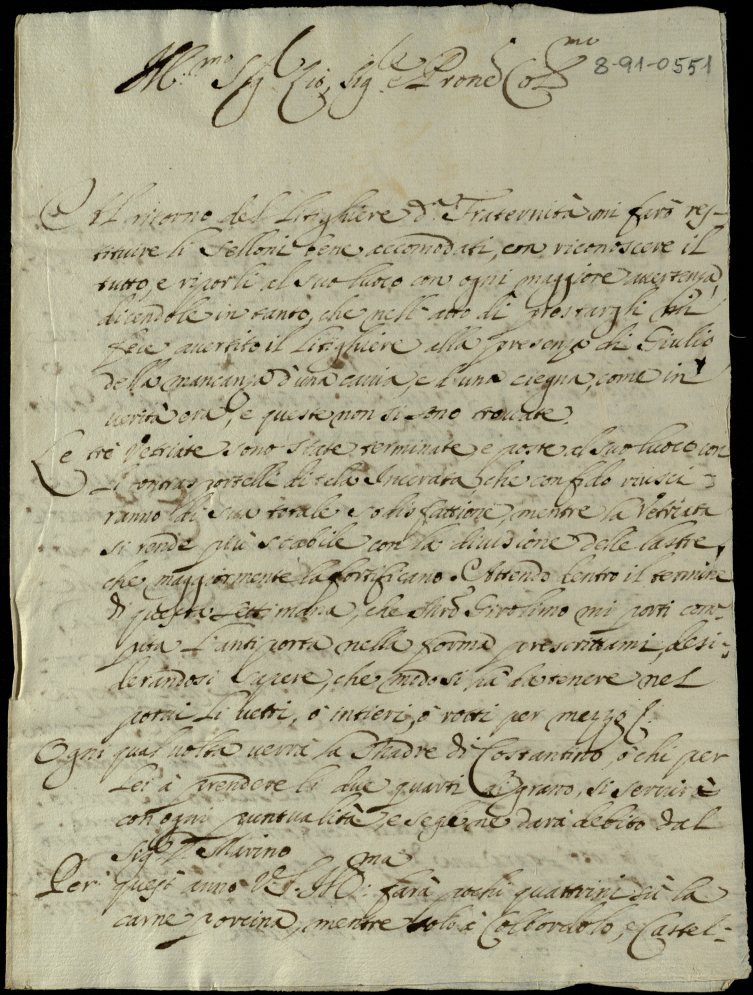 Ill.mo Sig.r Zio, Sig.re e Prone Col.mo 8-91-0551
Al ritorno del Letighiere di Fraternità mi farò res-
tituire li Felloni bene accomodati, con riconoscere il
tutto, e riporli al suo luoco con ogni maggiore avertenza,
dicendole in tanto, che nell'atto di prestargli
fece avertito il Letighiere alla presenza di Giulio
della mancanza d'una cavia, e d'una cegna, come in
verità era, e queste non si sono trovate.
Le trè Vetriate sono state terminate e poste al suo luoco con
li contrasportelli di tela Incerata che confido riusci-
ranno di sua totale sodisfattione, mentre la Vetriata
si rende più stabile con la divisione delle lastre,
che maggiormente la fortificano. Attendo dentro il termine
di questa settimana, che Girolimo mi porti com-
pita l'antiporta nella forma prescrittami, desi-
derandosi sapere, che modo si hà da tenere nel
porvi li vetri, ò intieri, ò rotti per mezzo.
Ogni qual volta verrà la Madre di Costantino, ò chi per
lei à prendere li due quarti di grano, si servirà
con ogni puntualità, e se gliene darà debito dal
Sig.r D. Marino
Per quest'anno V.S. Ill.ma farà pochi quattrini sù la
carne porcina, mentre solo à Colbordolo, e Castel-